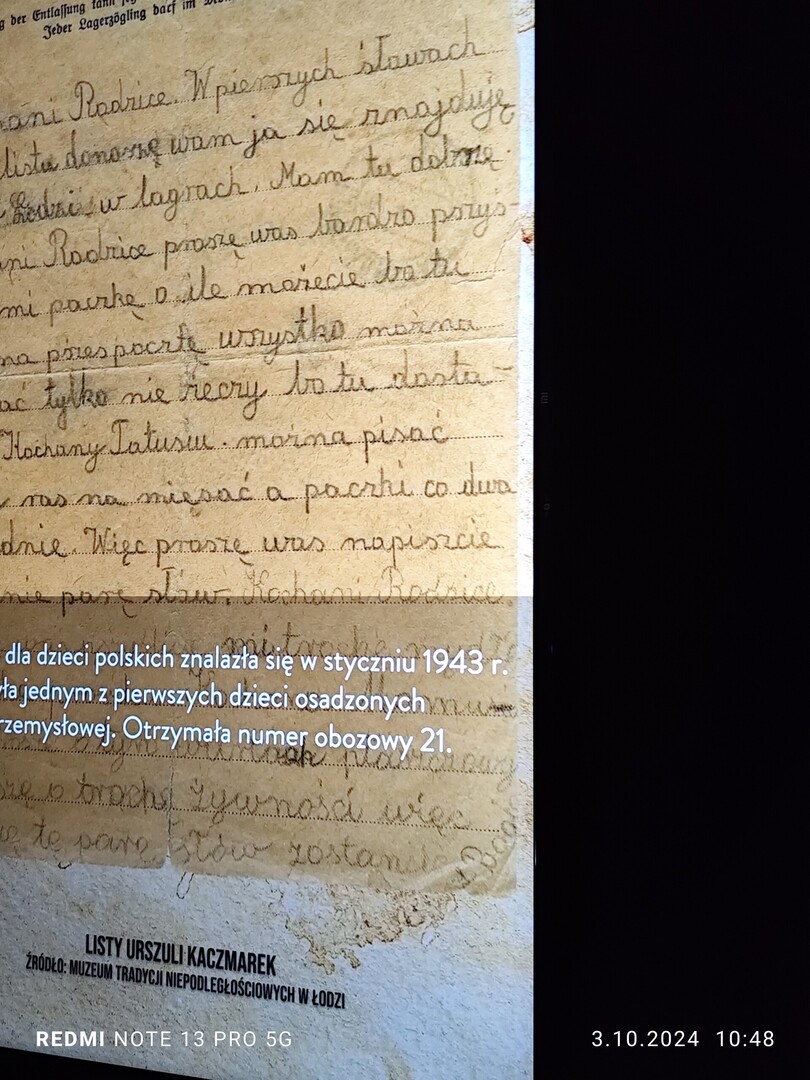 der Entlassung kann
Jeder Lagerzögling darf im
ani Rodzice. W pierwszych słowach
listu donoszę wam ja się znajduję
Łodzi w łagrach. Mam tu dobrze.
ni Rodzice proszę was bardzo przyś-
mi paczkę o ile możecie bo tu
na przes pocztę wszystko można
ać tylko nie rzeczy bo tu dosta-
Kochany Tatusiu. można pisać
ras na miesąć a paczki co dwa
dnie. Więc proszę was napiszcie
nie parę słów. Kochani Rodzice
mi trochę
dla dzieci polskich znalazła się w styczniu 1943 r.
ła jednym z pierwszych dzieci osadzonych
rzemysłowej. Otrzymała numer obozowy 21.
szę o trochę żywności więc
ię tę parę słów zostańcie
z Bog
LISTY URSZULI KACZMAREK
ŹRÓDŁO: MUZEUM TRADYCJI NIEPODLEGŁOŚCIOWYCH W ŁODZI
REDMI NOTE 13 PRO 5G
3.10.2024 10:48